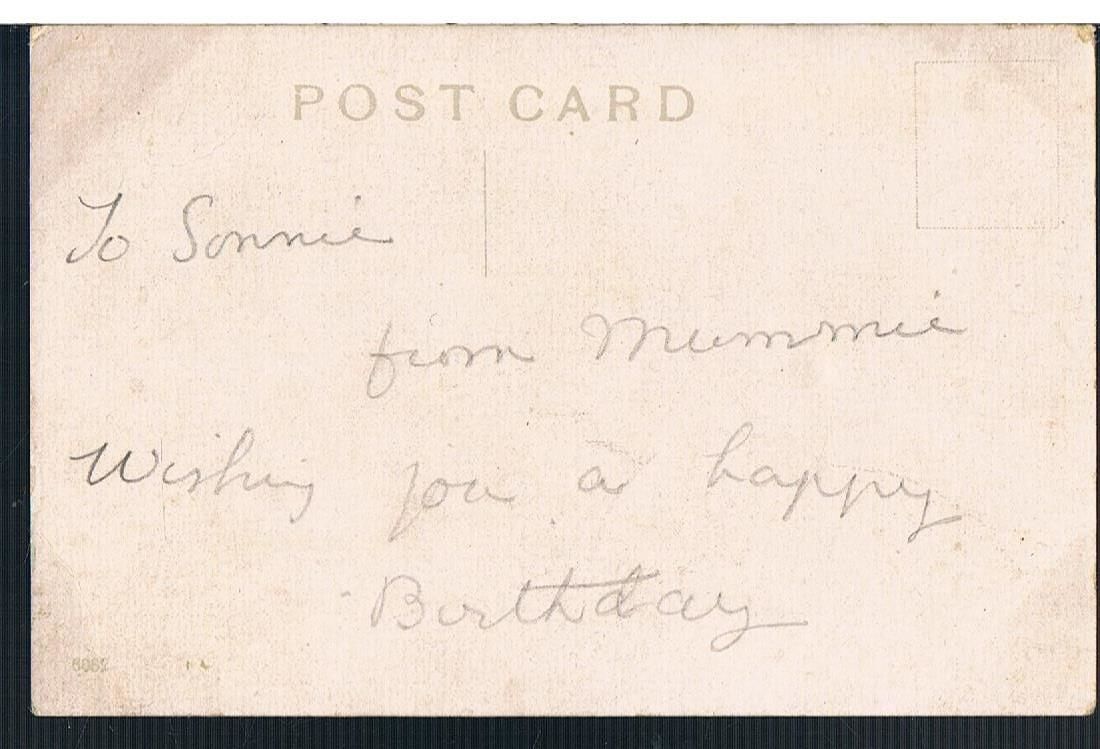 POST CARD
To Sonnie
from Mummie
Wishing you a happy
Birthday